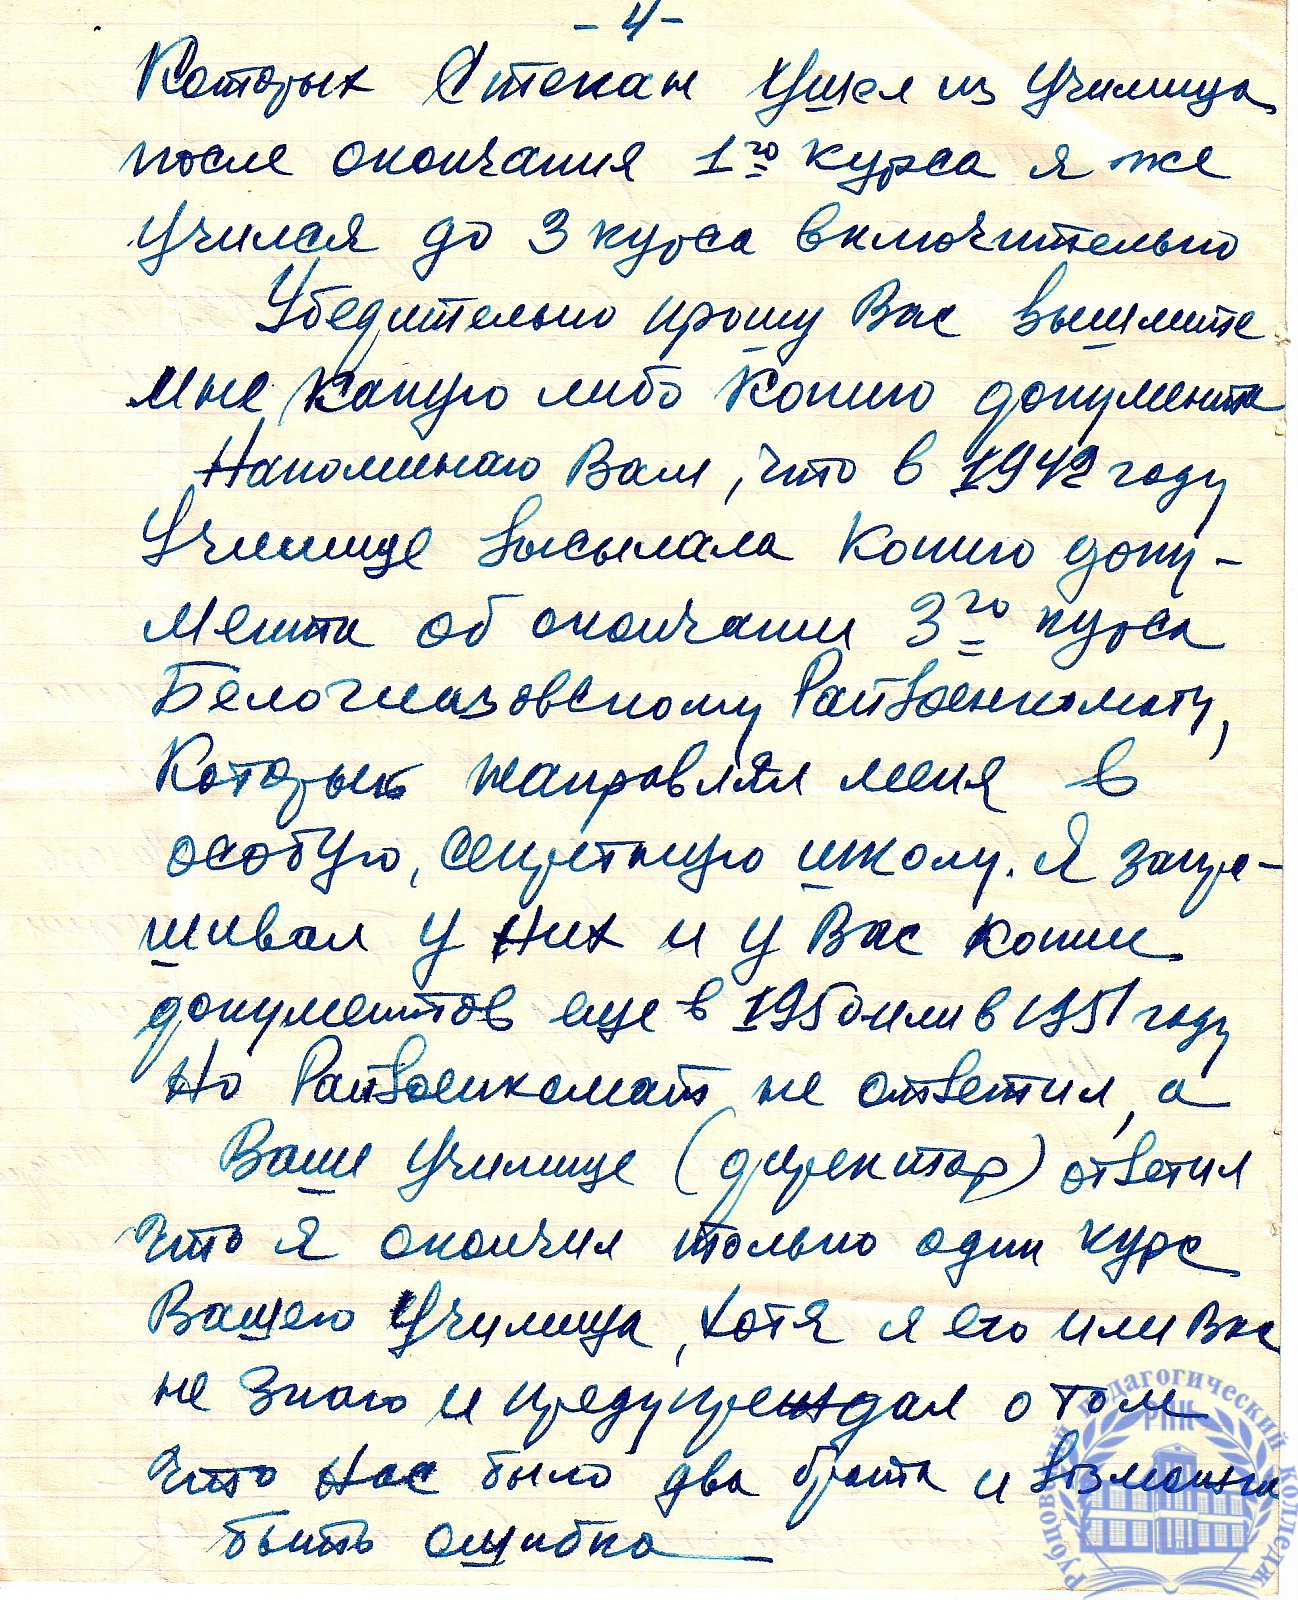 - 4 -
Которых Степан ушел из училища
после окончания 1го курса я же
учился до 3 курса включительно
Убедительно прошу Вас вышлите
мне какую либо копию документа
Напоминаю Вам, что в 1942 году
училище высылала копию доку-
мента об окончании 3го курса
Белоглазовскому Райвоенкомату,
который направлял меня в
особую, секретную школу. Я запра-
шивал у них и у Вас копии
документов еще в 1950 или в 1951 году
Но Райвоенкомат не ответил, а
Ваше училище (директор) ответил
что я окончил только один курс
Вашего училища, хотя я его или Вас
не знаю и предупреждал о том
что нас было два брата и возможна
быть ошибка
Рубцовский педагогический колледж
РПК